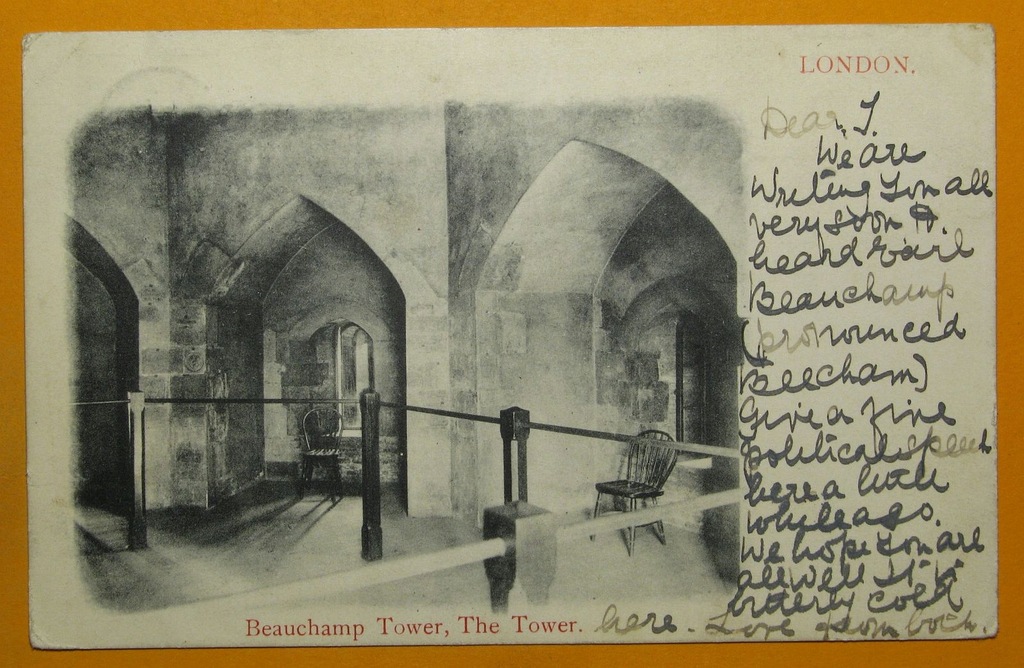 LONDON.
Dear J.
We are
writing you all
very soon
heard Earl
Beauchamp
(pronounced
Beecham)
Give a fine
political speech
here a little
while ago.
We hope you are
all well It is
bitterly cold
here. Love from both.
Beauchamp Tower, The Tower.